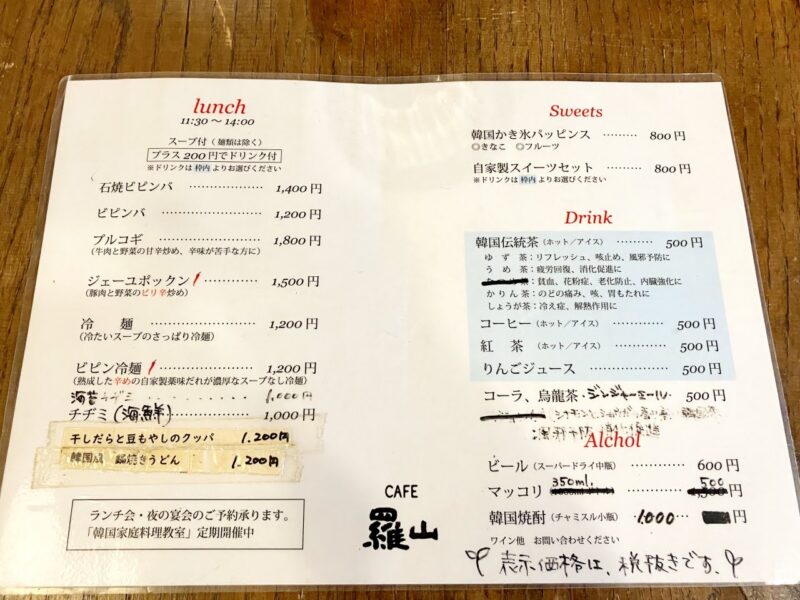 lunch
11:30 ～ 14:00
スープ付 ( 麺類は除く )
プラス 200 円でドリンク付
※ドリンクは 枠内 よりお選びください
石焼ビビンバ ……………… 1,400 円
ビビンバ ……………… 1,200 円
プルコギ ……………… 1,800 円
(牛肉と野菜の甘辛炒め、辛味が苦手な方に)
ジェーユポックン ……………… 1,500 円
(豚肉と野菜のピリ辛炒め)
冷　麺 ……………… 1,200 円
(冷たいスープのさっぱり冷麺)
ビビン冷麺 ……………… 1,200 円
(熟成した辛めの自家製薬味だれが濃厚なスープなし冷麺)
海苔チヂミ ……… 1,000円
チヂミ (海鮮) ……… 1,000 円
干しだらと豆もやしのクッパ 1.200円
鍋焼きうどん 1.200円
ランチ会・夜の宴会のご予約承ります。
「韓国家庭料理教室」定期開催中
CAFE
羅山
Sweets
韓国かき氷パッピンス ……… 800 円
◎きなこ ◎フルーツ
自家製スイーツセット ……… 800 円
※ドリンクは 枠内 よりお選びください
Drink
韓国伝統茶 (ホット／アイス) ……… 500 円
ゆ ず 茶：リフレッシュ、咳止め、風邪予防に
う め 茶：疲労回復、消化促進に
茶：貧血、花粉症、老化防止、内臓強化に
かりん茶：のどの痛み、咳、胃もたれに
しょうが茶：冷え症、解熱作用に
コーヒー (ホット／アイス) ……… 500 円
紅　茶 (ホット／アイス) ……… 500 円
りんごジュース ……………… 500 円
コーラ、烏龍茶・ジンジャーエール・ 500 円
Alchol
ビール (スーパードライ中瓶) ……… 600 円
マッコリ 350ml. ……… 500 円
韓国焼酎 (チャミスル小瓶) … 1.000 … 円
ワイン他　お問い合わせください
表示価格は、税抜きです。